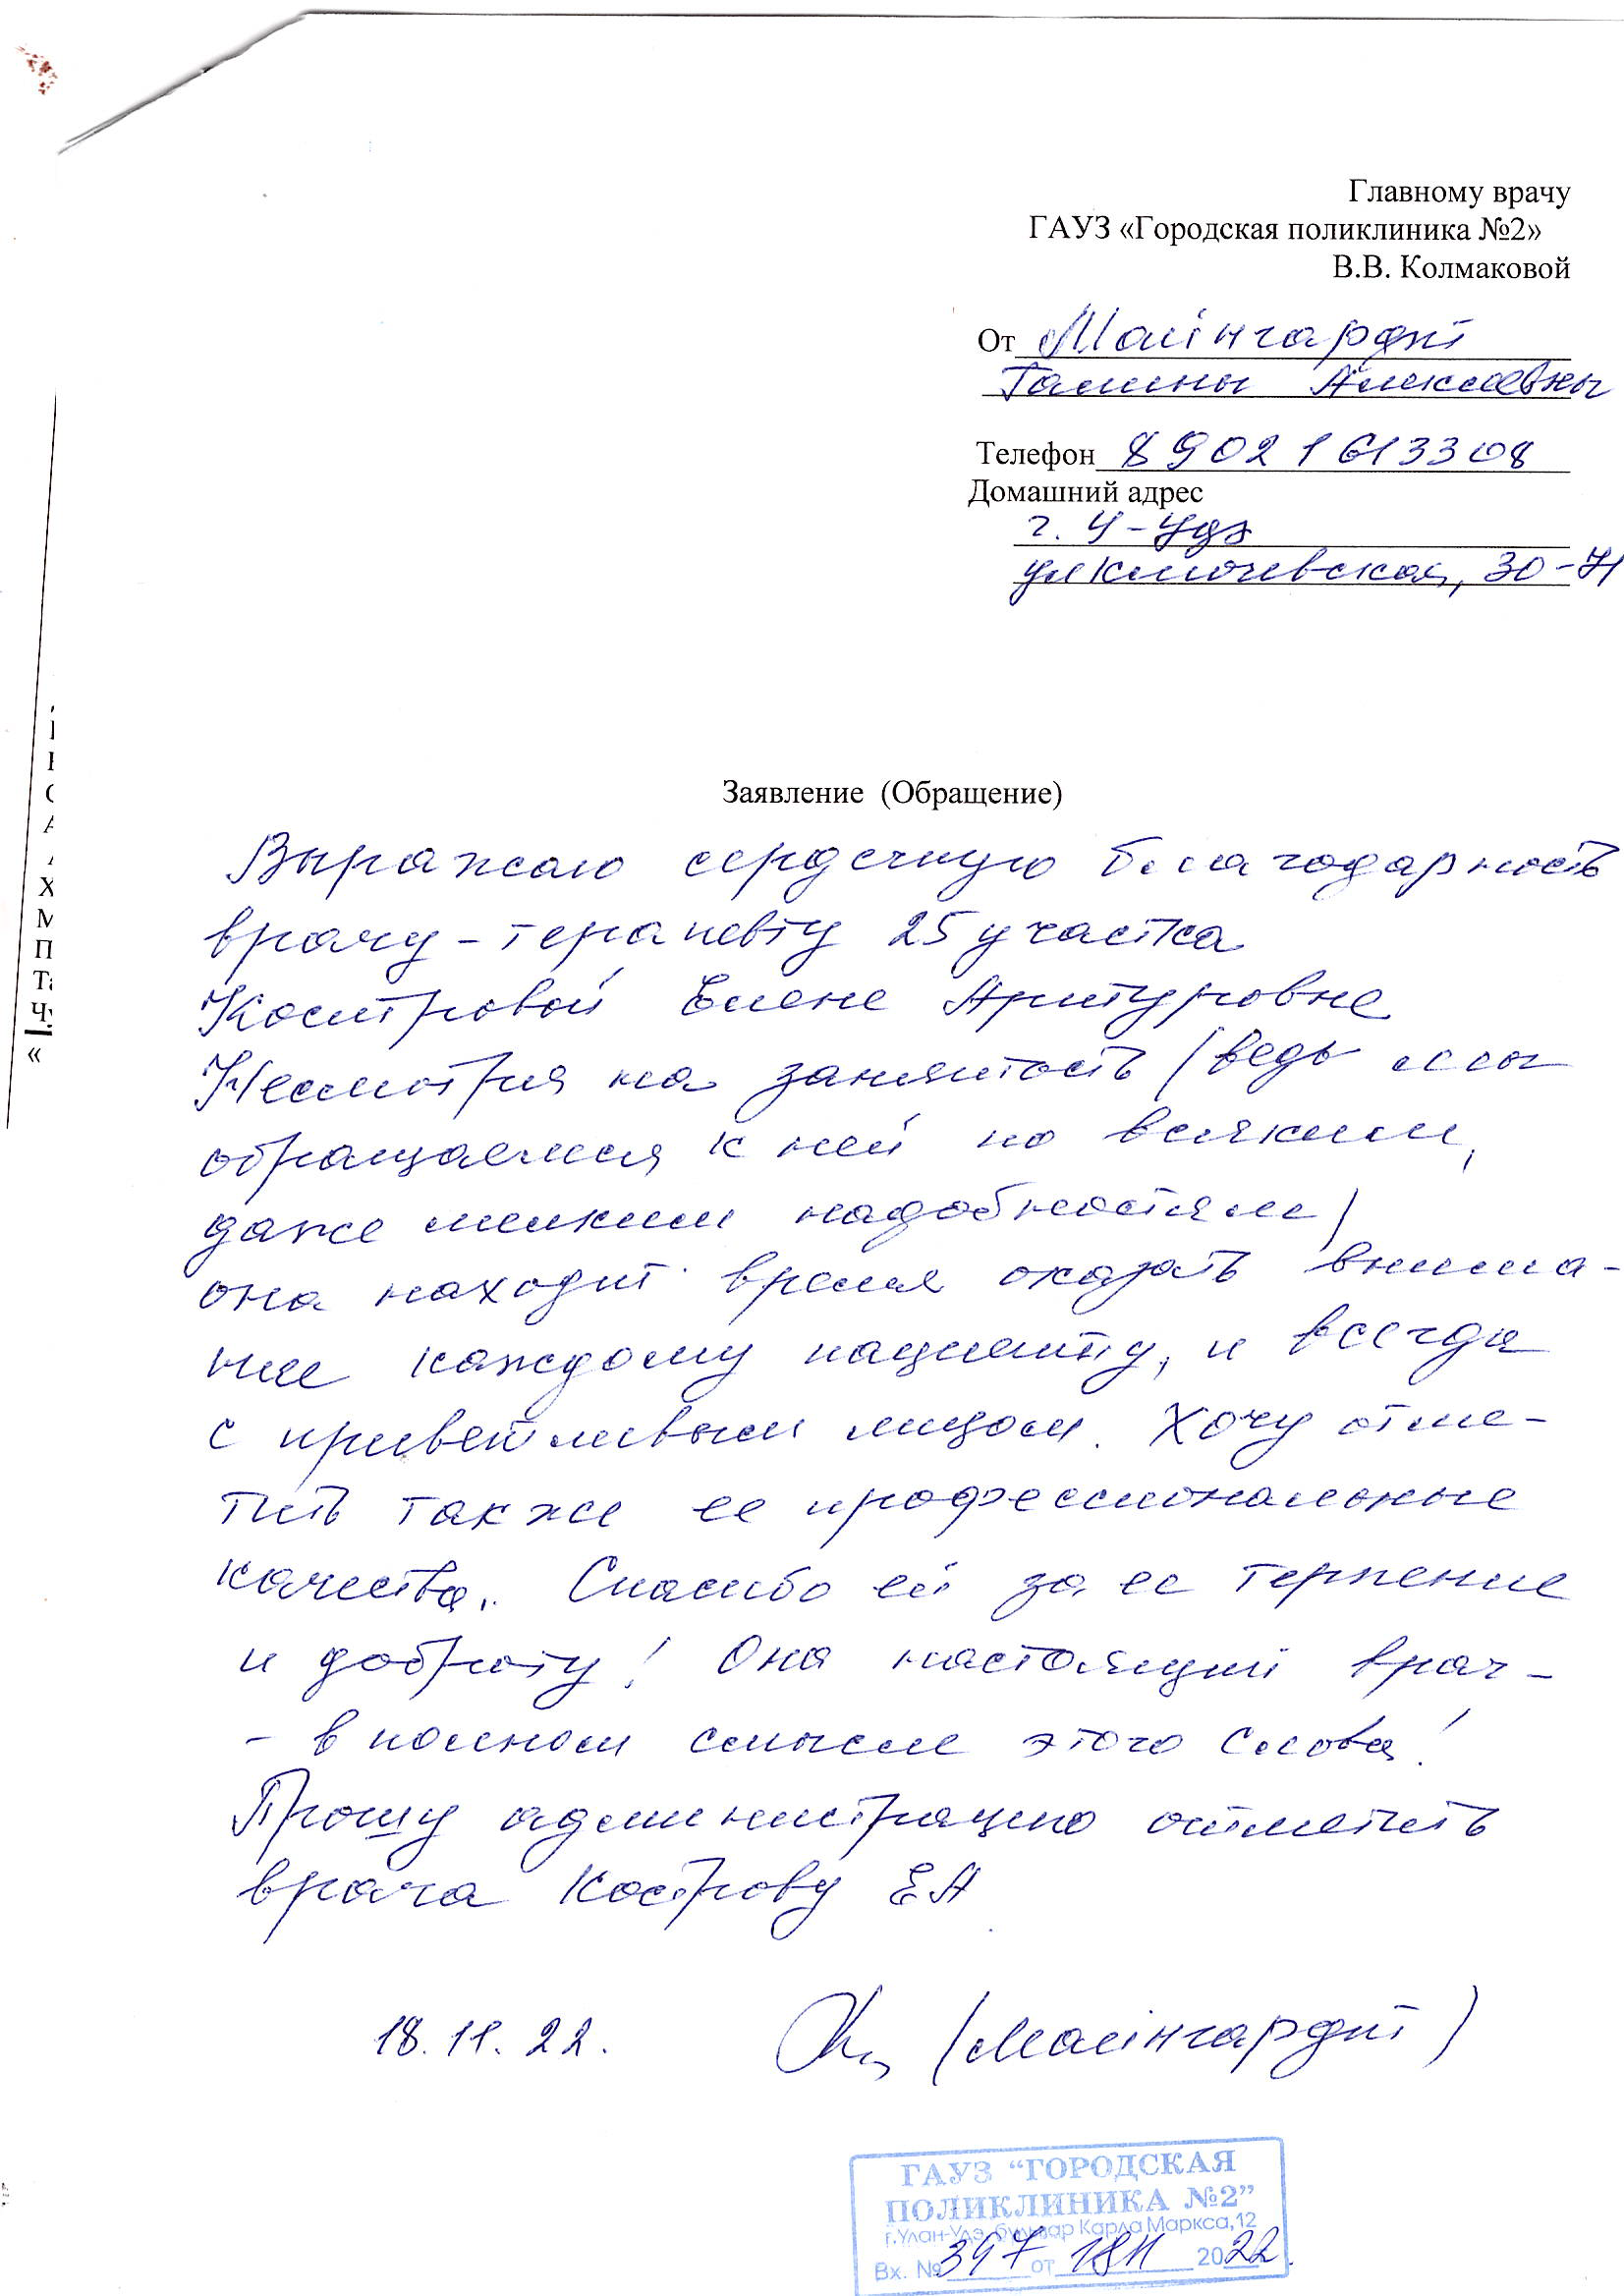 Главному врачу
ГАУЗ «Городская поликлиника №2»
В.В. Колмаковой
От Майнгардт
Галины Алексеевны
Телефон 89021613308
Домашний адрес
г. У-Удэ
ул Ключевская, 30-71
Х
П
Та
«
Заявление (Обращение)
Выражаю сердечную благодарность
врачу-терапевту 25 участка
Костровой Елене Артуровне
Несмотря на занятость (ведь мы
обращаемся к ней по всяким,
даже мелким надобностям)
она находит время оказать внима-
ние каждому пациенту, и всегда
с приветливым лицом. Хочу отме-
тить также ее профессиональные
качества. Спасибо ей за ее терпение
и доброту! Она настоящий врач-
- в полном смысле этого слова!
Прошу администрацию отметить
врача Кострову ЕА
18.11.22. (Майнгардт)
ГАУЗ "ГОРОДСКАЯ
ПОЛИКЛИНИКА №2"
г.Улан-Удэ, бульвар Карла Маркса,12
Вх. № 397 от 1811 2022.